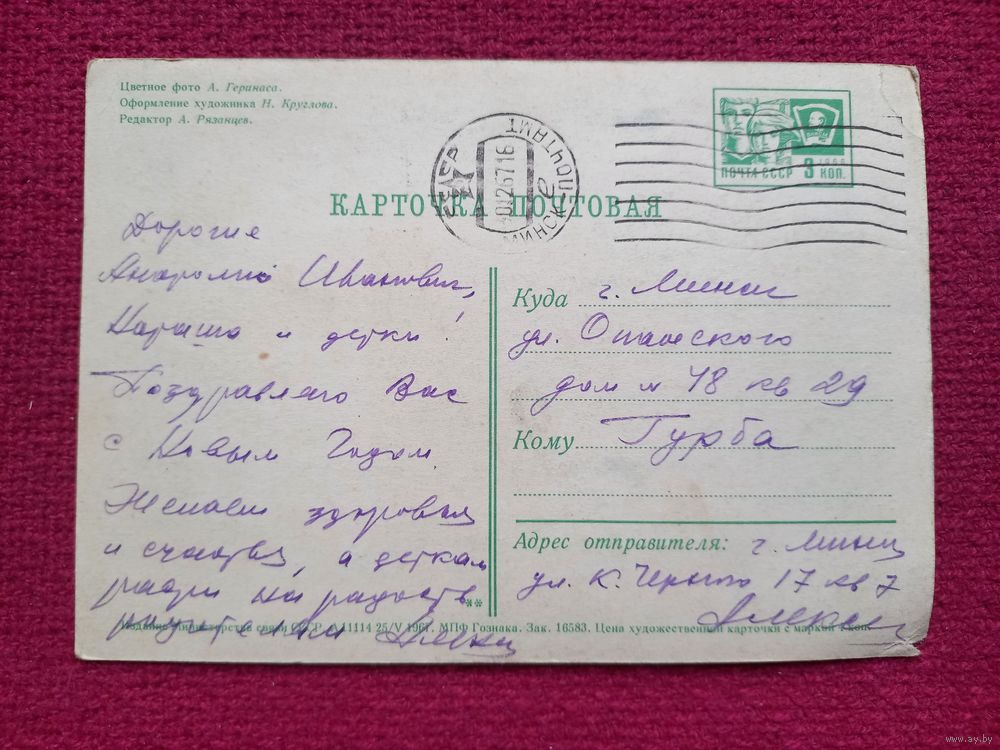 Цветное фото А. Геринаса.
Оформление художника Н. Круглова.
Редактор А. Рязанцев.
ПОЧТА СССР 3 КОП.
1966
БССР ПОЧТАМТ МИНСК
КАРТОЧКА ПОЧТОВАЯ
Дорогие
Анатолий Иванович,
Наташа и детки!
Поздравляю Вас
с Новым Годом
Желаем здоровья
и счастья, а деткам
расти на радость
Куда г. Минск
ул.
дом № 48 кв 29
Кому Турба
Адрес отправителя: г. Минск
ул. К. Чорного 17 кв 7
Издание Министерства связи СССР. 11114 25/V 1967. МПФ Гознака. Зак. 16583. Цена художественной карточки с маркой 4 коп.
www.ay.by